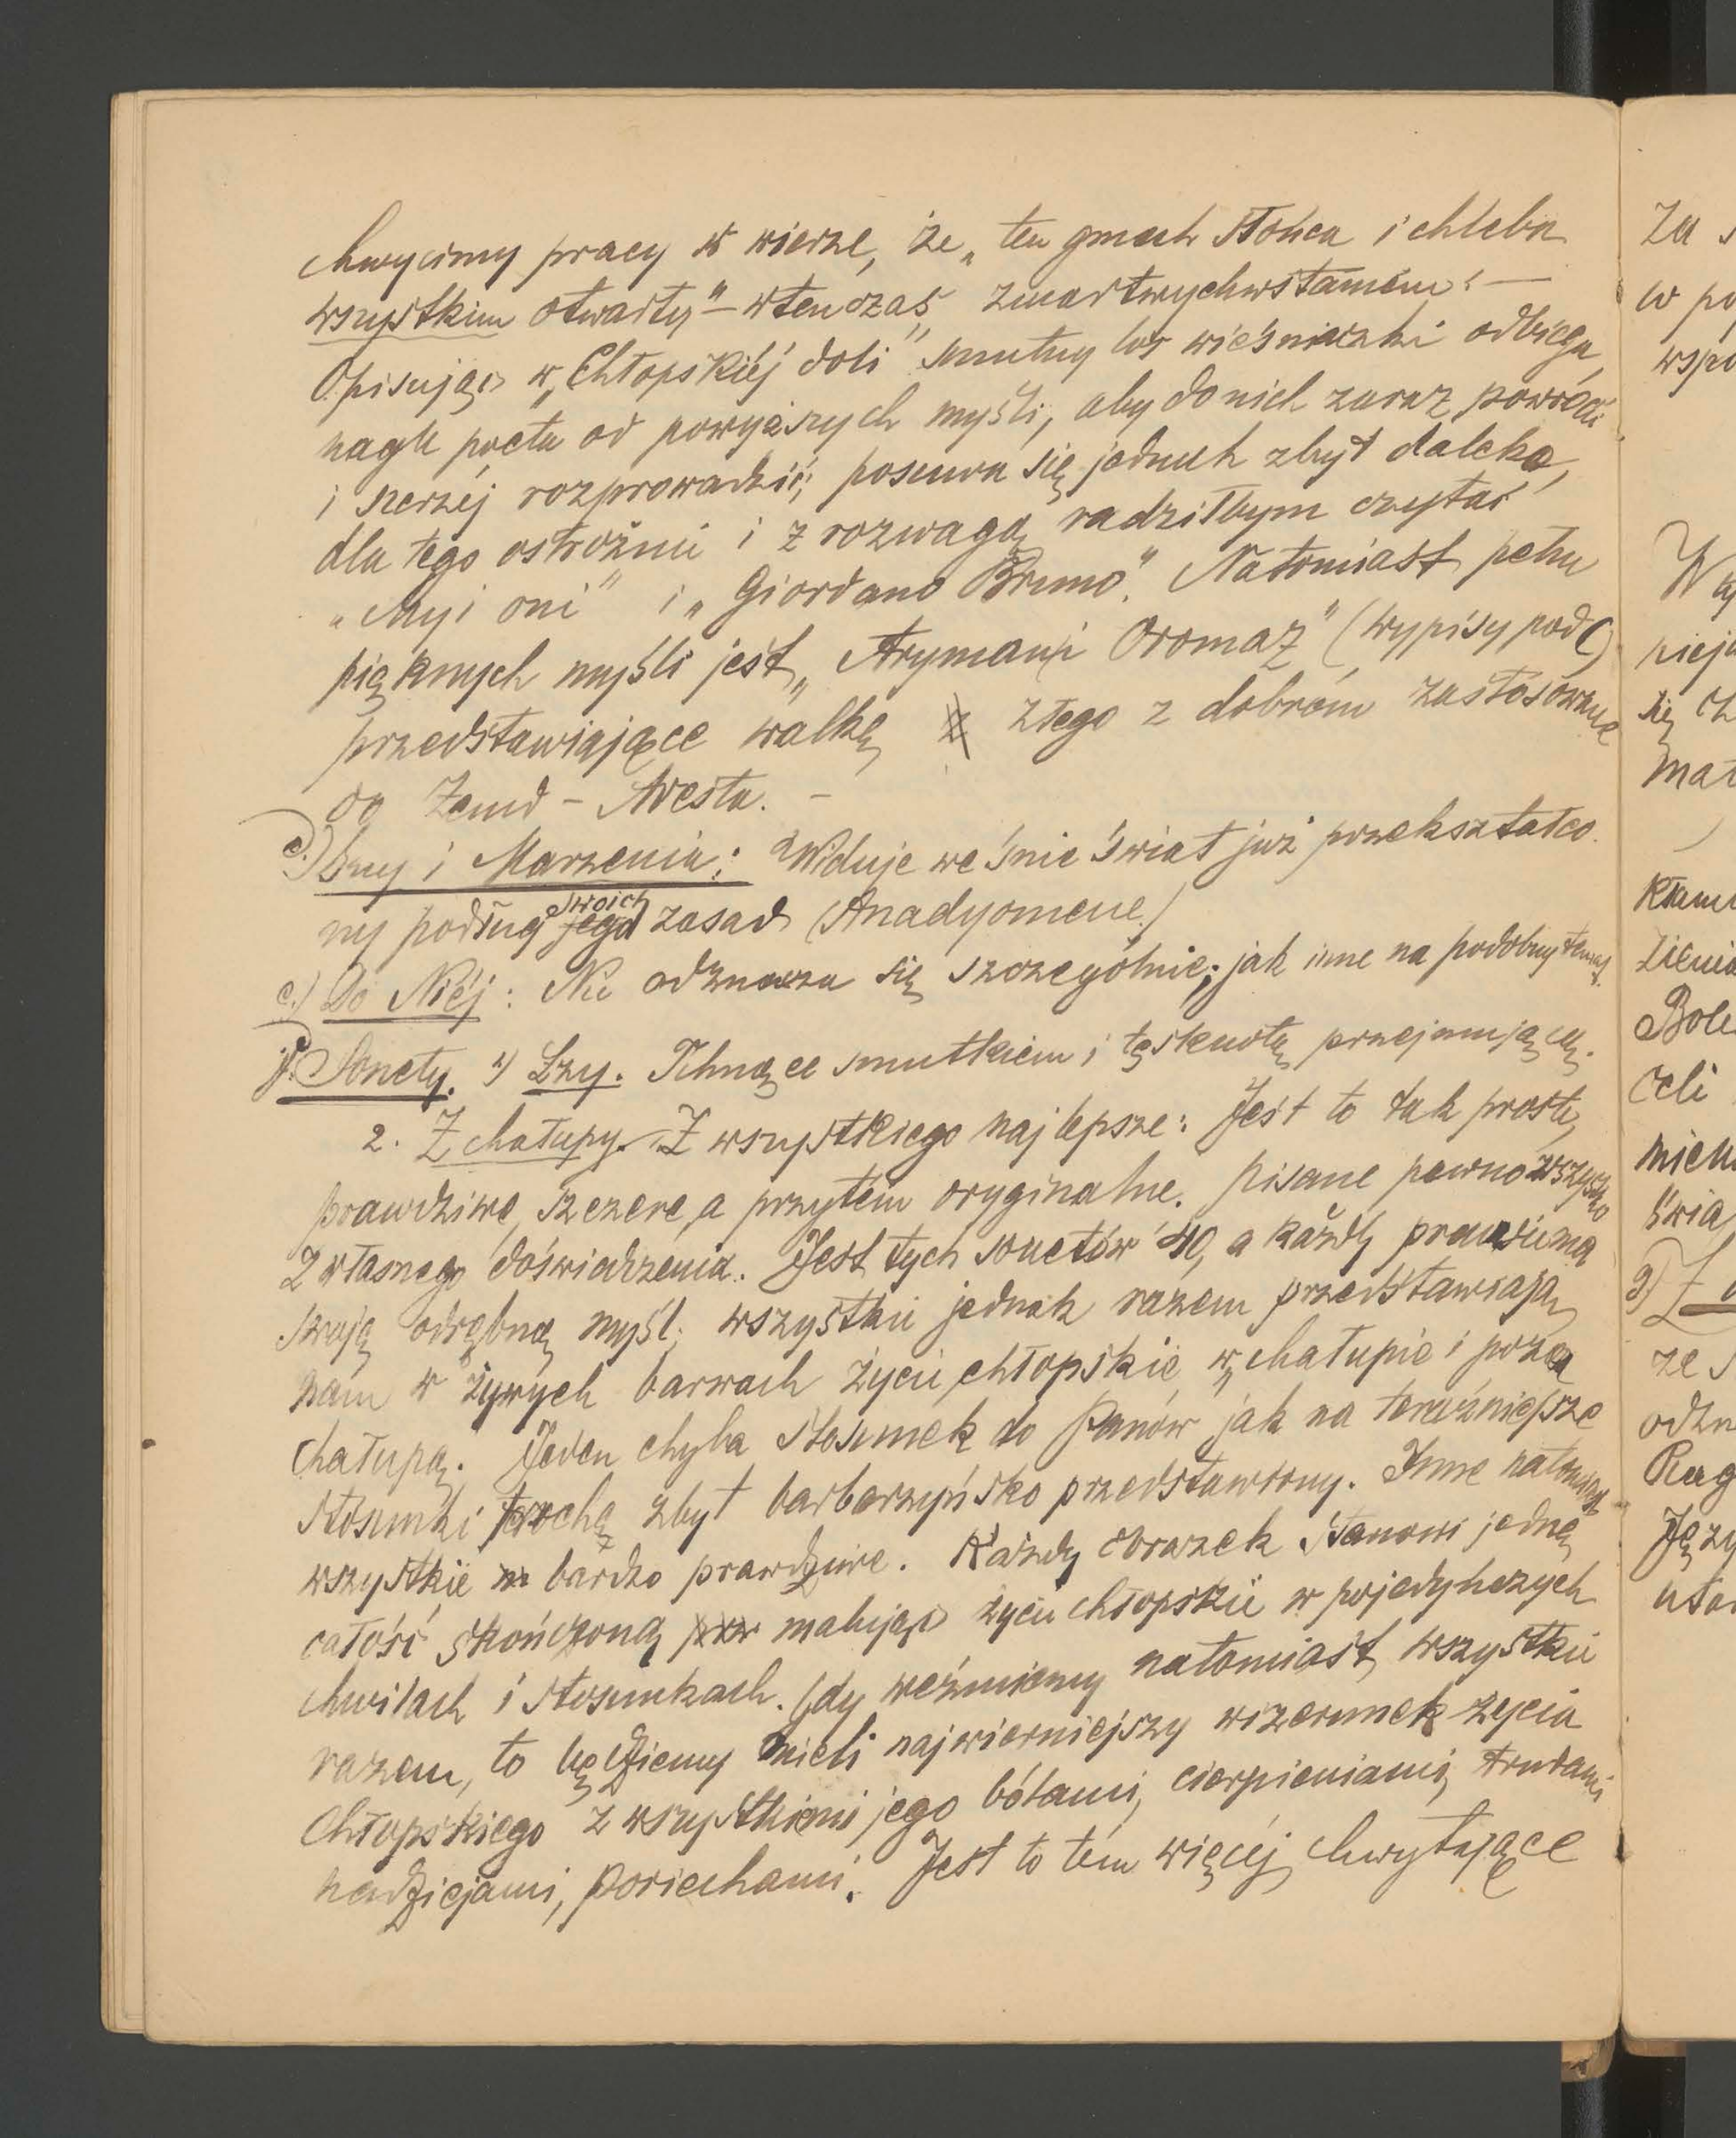 chwycimy pracy w wierze, że „ten gmach słońca i chleba
wszystkim otwarty" – wtenczas zmartwychwstaniem! —
Opisując w „Chłopskiéj doli" smutny los wieśniaczki odbiega
nagle poeta od powyższych myśli, aby do nich zaraz powrócić
i szerzéj rozprowadzić; posuwa się jednak zbyt daleko,
dla tego ostrożnie i z rozwagą radziłbym czytać
„My i oni" i „Giordano Bruno". Natomiast pełne
pięknych myśli jest „Aryman i Oromaz" (wypisy pod C)
przedstawiające walkę złego z dobrém zastosowane
do Zend-Avesta. –
d.) Sny i Marzenia: Widuje we śnie świat już przekształco-
ny podług jego swoich zasad (Anadyomene)
e.) Do Niéj: Nie odznacza się szczególnie; jak inne na podobny temat.
f. Sonety. 1) Łzy. Tchnące smutkiem i tęsknotą przejmującą.
2. Z chałupy. Z wszystkiego najlepsze: Jest to tak proste,
prawdziwe, szczere, a przytém oryginalne. Pisane pewno wszystko
z własnego doświadczenia. Jest tych sonetów 40, a każdy prawie ma
swoją odrębną myśl; wszystkie jednak razem przedstawiają
nam w żywych barwach życie chłopskie w chałupie i poza
chałupą. Jeden chyba stosunek do Panów jak na teraźniejsze
stosunki trochę zbyt barbarzyńsko przedstawiony. Inne natomiast
wszystkie bardzo prawdziwe. Każdy obrazek stanowi jedną
całość skończoną malując życie chłopskie w pojedyńczych
chwilach i stosunkach. Gdy weźmiemy natomiast wszystkie
razem, to będziemy mieli najwierniejszy wizerunek życia
chłopskiego z wszystkiemi jego bólami, cierpieniami, trudami
nadziejami, pociechami. Jest to tém więcéj chwytające